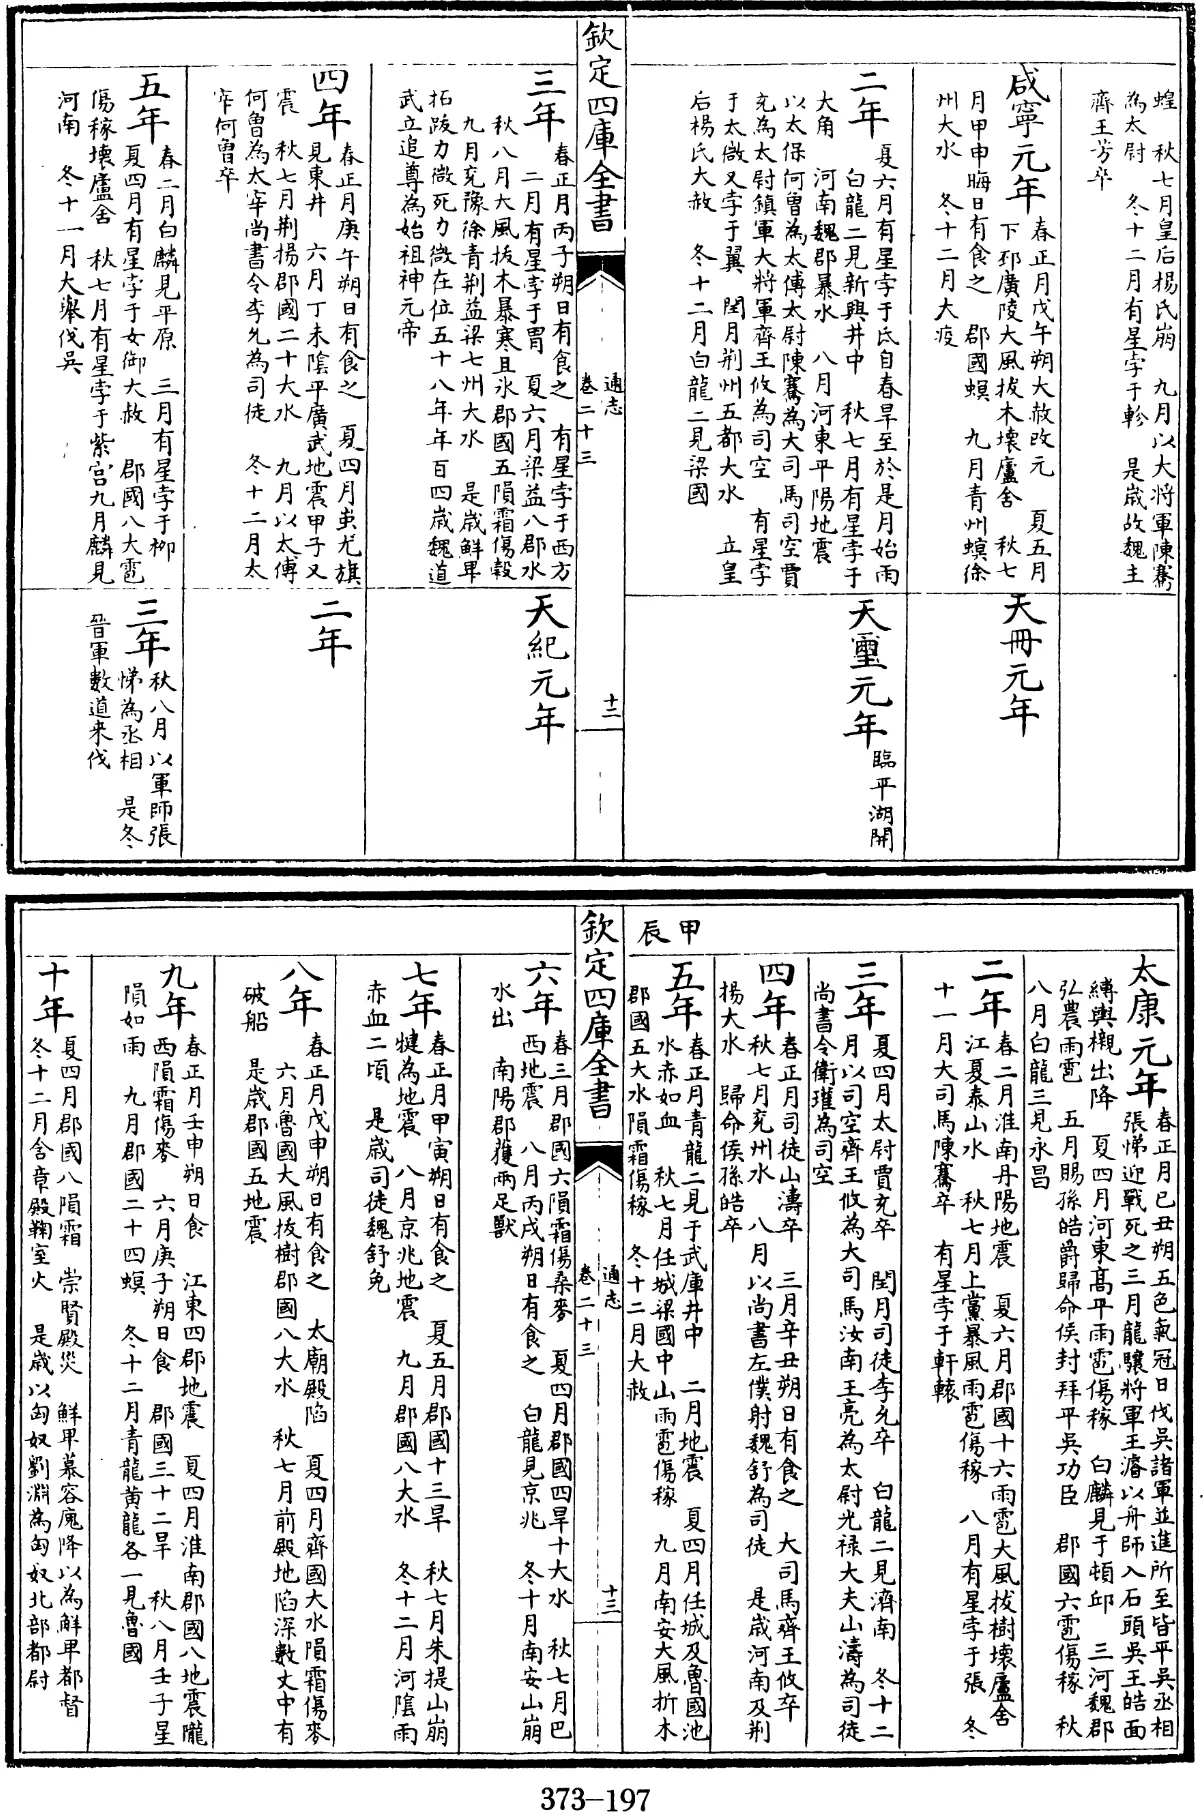 蝗　秋七月皇后楊氏崩　九月以大將軍陳騫
為太尉　冬十二月有星孛于軫　是歲故魏主
齊王芳卒
咸寧元年
春正月戊午朔大赦改元　夏五月
下邳廣陵大風拔木壞廬舍　秋七
月甲申晦日有食之　郡國螟　九月青州螟徐
州大水　冬十二月大疫
天冊元年
二年
夏六月有星孛于氐自春旱至於是月始雨
白龍二見新興井中　秋七月有星孛于
大角　河南魏郡暴水　八月河東平陽地震
以太保何曾為太傅太尉陳騫為大司馬司空賈
充為太尉鎮軍大將軍齊王攸為司空　有星孛
于太微又孛于翼　閏月荆州五郡大水　立皇
后楊氏大赦　冬十二月白龍二見梁國
天璽元年
臨平湖開
欽定四庫全書
通志
卷二十三
十二
三年
春正月丙子朔日有食之　有星孛于西方
二月有星孛于胃　夏六月梁益八郡水
秋八月大風拔木暴寒且氷郡國五隕霜傷穀
九月兗豫徐青荆益梁七州大水　是歲鮮卑
拓跋力微死力微在位五十八年年百四歲魏道
武立追尊為始祖神元帝
天紀元年
四年
春正月庚午朔日有食之　夏四月蚩尤旗
見東井　六月丁未陰平廣武地震甲子又
震　秋七月荆揚郡國二十大水　九月以太傅
何曾為太宰尚書令李允為司徒　冬十二月太
宰何曾卒
二年
五年
春二月白麟見平原　三月有星孛于柳
夏四月有星孛于女御大赦　郡國八大雹
傷稼壞廬舍　秋七月有星孛于紫宫九月麟見
河南　冬十一月大舉伐吳
三年
秋八月以軍師張
悌為丞相　是冬
晉軍數道来伐
甲辰
太康元年
春正月己丑朔五色氣冠日伐吳諸軍並進所至皆平吳丞相
張悌迎戰死之三月龍驤將軍王濬以舟師入石頭吳王皓面
縛輿櫬出降　夏四月河東髙平雨雹傷稼　白麟見于頓邱　三河魏郡
弘農雨雹　五月賜孫皓爵歸命侯封拜平吳功臣　郡國六雹傷稼　秋
八月白龍三見永昌
二年
春二月淮南丹陽地震　夏六月郡國十六雨雹大風拔樹壞廬舍
江夏泰山水　秋七月上黨暴風雨雹傷稼　八月有星孛于張　冬
十一月大司馬陳騫卒　有星孛于軒轅
三年
夏四月太尉賈充卒　閏月司徒李允卒　白龍二見濟南　冬十二
月以司空齊王攸為大司馬汝南王亮為太尉光禄大夫山濤為司徒
尚書令衛瓘為司空
四年
春正月司徒山濤卒　三月辛丑朔日有食之　大司馬齊王攸卒
秋七月兗州水　八月以尚書左僕射魏舒為司徒　是歲河南及荆
揚大水　歸命侯孫皓卒
五年
春正月青龍二見于武庫井中　二月地震　夏四月任城及魯國池
水赤如血　秋七月任城梁國中山雨雹傷稼　九月南安大風折木
郡國五大水隕霜傷稼　冬十二月大赦
欽定四庫全書
通志
卷二十三
十三
六年
春三月郡國六隕霜傷桑麥　夏四月郡國四旱十大水　秋七月巴
西地震　八月丙戌朔日有食之　白龍見京兆　冬十月南安山崩
水出　南陽郡獲兩足獸
七年
春正月甲寅朔日有食之　夏五月郡國十三旱　秋七月朱提山崩
犍為地震　八月京兆地震　九月郡國八大水　冬十二月河隂雨
赤血二頃　是歲司徒魏舒免
八年
春正月戊申朔日有食之　太廟殿陷　夏四月齊國大水隕霜傷麥
六月魯國大風拔樹郡國八大水　秋七月前殿地陷深數丈中有
破船　是歲郡國五地震
九年
春正月壬申朔日食　江東四郡地震　夏四月淮南郡國八地震隴
西隕霜傷麥　六月庚子朔日食　郡國三十二旱　秋八月壬子星
隕如雨　九月郡國二十四螟　冬十二月青龍黄龍各一見魯國
十年
夏四月郡國八隕霜　崇賢殿災　鮮卑慕容廆降以為鮮卑都督
冬十二月含章殿鞠室火　是歲以匈奴劉淵為匈奴北部都尉
373-197